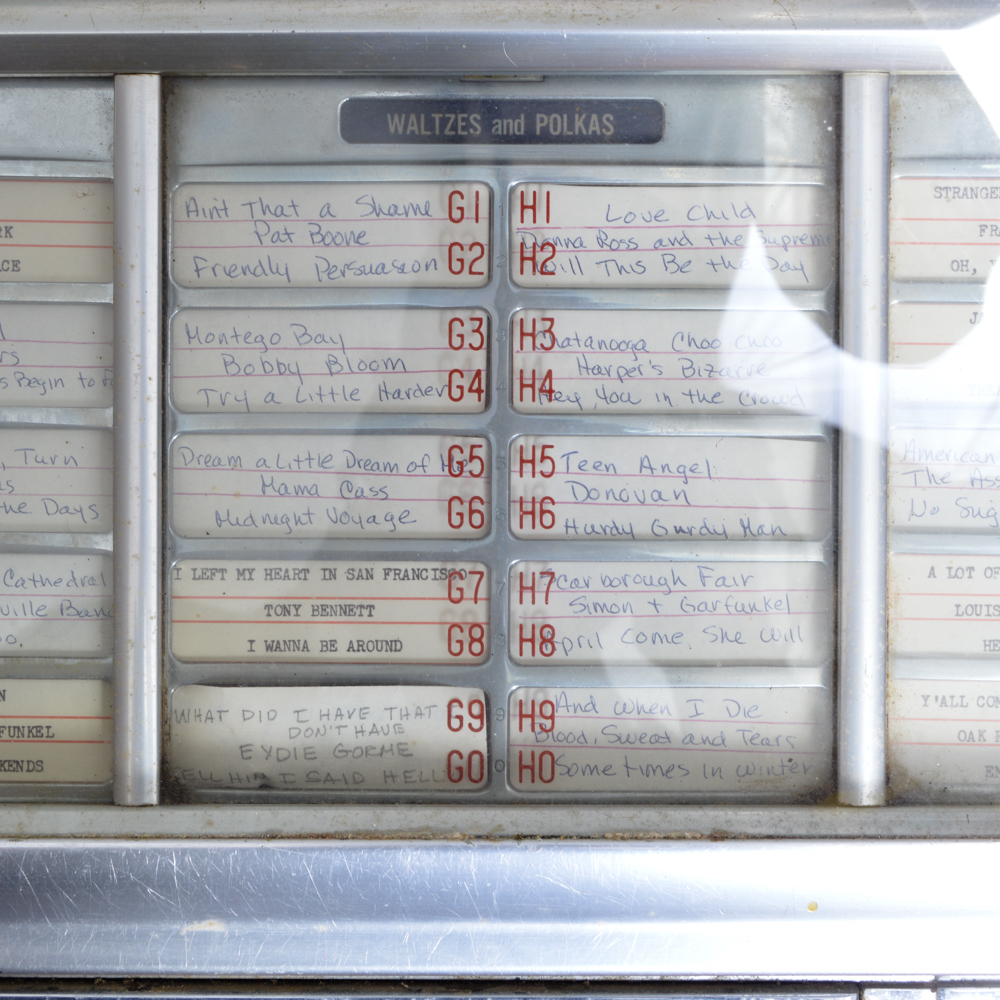 WALTZES and POLKAS
Ain't That a Shame G1
Pat Boone
Friendly Persuasion G2
Montego Bay G3
Bobby Bloom
Try a Little Harder G4
Dream a Little Dream of Me G5
Mama Cass
Midnight Voyage G6
I LEFT MY HEART IN SAN FRANCISCO G7
TONY BENNETT
I WANNA BE AROUND G8
WHAT DID I HAVE THAT G9
DON'T HAVE
EYDIE GORME
TELL HIM I SAID HELLO G0
H1 Love Child
Dianna Ross and the Supremes
H2 Will This Be the Day
H3 Chatanooga Choo Choo
Harper's Bizarre
H4 Hey, You in the Crowd
H5 Teen Angel
Donovan
H6 Hurdy Gurdy Man
H7 Scarborough Fair
Simon + Garfunkel
H8 April Come She Will
H9 And When I Die
Blood, Sweat and Tears
H0 Sometimes in Winter
RK
ACE
rs
s Begin to
, Turn
us
the Days
Cathedral
ville Band
oo.
N
FUNKEL
KENDS
STRANGE
FR
OH,
American
The Ass
No Sug
A LOT OF
LOUIS
HE
Y'ALL COM
OAK